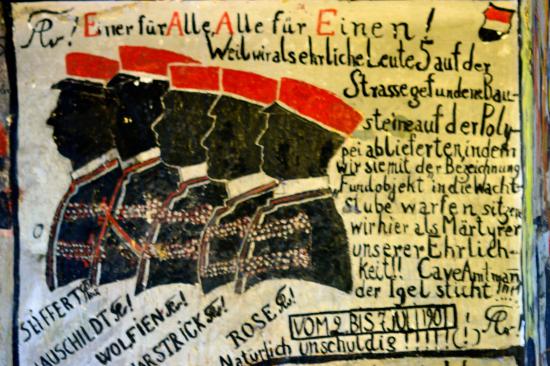 Einer für Alle, Alle für Einen!
Weil wir als ehrliche Leute 5 auf der
Strasse gefundene Bau-
steine auf der Poly-
pei ablieferten indem
wir sie mit der Bezeichnung
"Fundobjekt" in die Wacht-
stube warfen sitzen
wir hier als Märtyrer
unserer Ehrlich-
keit!! Cave Amtman
der Igel sticht !!!!
SEIFFERT
HAUSCHILDT!
WOLFIEN!
ARSTRICK!
ROSE!
VOM 2. BIS 7. JULI 1901
Natürlich unschuldig !!!!!(!)